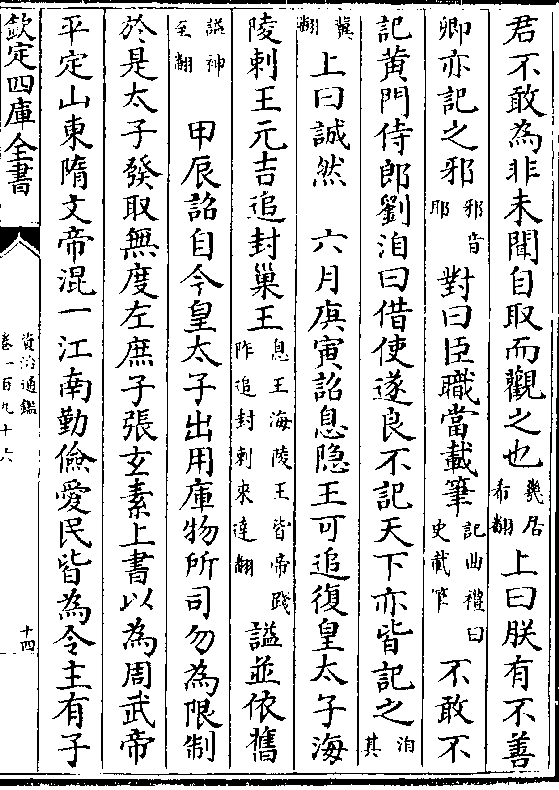 君不敢為非未聞自取而觀之也幾居希翻上曰朕有不善
卿亦記之邪邪音耶對曰臣職當載筆記曲禮曰史載筆不敢不
記黄門侍郎劉洎曰借使遂良不記天下亦皆記之洎其
冀翻上曰誠然 六月庚寅詔息隐王可追復皇太子海
陵剌王元吉追封巢王息王海陵王皆帝踐阼追封剌來達翻諡並依舊
諡神至翻 甲辰詔自今皇太子出用庫物所司勿為限制
於是太子發取無度左庶子張玄素上書以為周武帝
平定山東隋文帝混一江南勤儉愛民皆為令主有子
欽定四庫全書
資治通鑑
卷一百九十六
十四